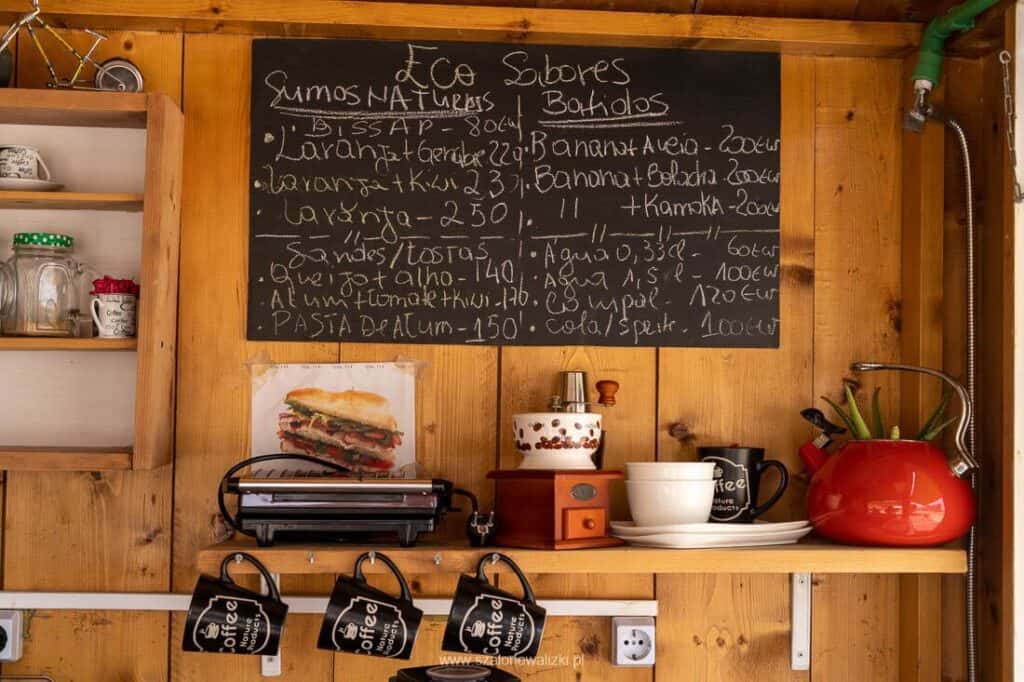 Eco Sabores
Sumos NATURAIS
• BISSAP - 80cv
Laranja + Gengibre 220
• Laranja + Kiwi 230
• Laranja - 250
Sandes/tostas
• Queijo + alho - 140
• Atum + tomate + Kiwi - 170
• PASTA De Atum - 150
Batidos
• Banana + Aveia - 200cv
• Banana + Bolacha 200cv
• " + KamoKA - 200cv
• Agua 0,33cl - 60cv
• Agua 1,5l - 100cv
• Compal - 120cv
• Cola/Sprit. 100cv
Coffee
Coffee
Nature
Products
Coffee
Nature
Products
Coffee
Nature
Products
Coffee
Nature
Products
www.szalonewalizki.pl